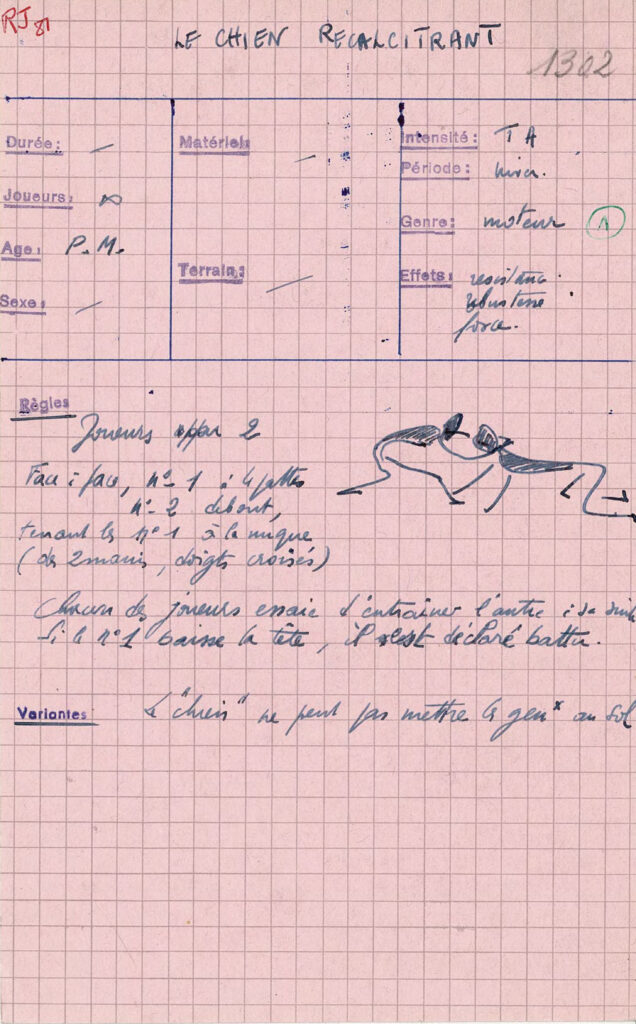 RJ 81
LE CHIEN RECALCITRANT
1302
Durée: —
Joueurs: ∞
Age: P.M.
Sexe: —
Matériel: —
Terrain: —
Intensité: TA
Période: hiver.
Genre: moteur 1
Effets: resistance.
robustesse
force.
Règles
Joueurs par 2
Face à face, n° 1 à 4 pattes
n° 2 debout,
tenant le n° 1 à la nuque
(des 2 mains, doigts croisés)
Chacun des joueurs essaie d'entraîner l'autre à sa suite
Si le n° 1 baisse la tête, il est déclaré battu.
Variantes
Le "chien" ne peut pas mettre le genx au sol